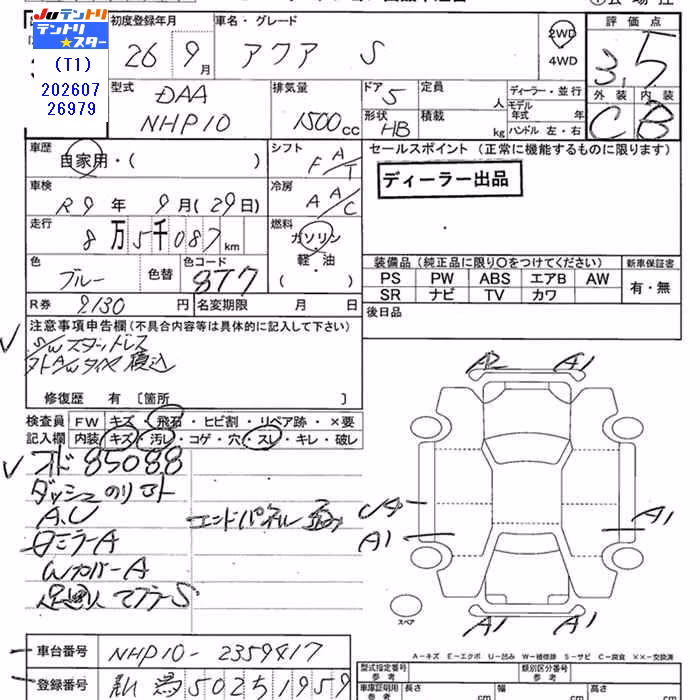 Juテントリ
テントリ★スター
(T1)
202607
26979
初度登録年月
26 9月
車名・グレード
アクア S
2WD
4WD
評価点
3.5
外装 内装
C B
型式
DAA
NHP10
排気量
1500cc
ドア
5
形状
HB
定員
人
積載
kg
ディーラー・並行
モデル
年式 年
ハンドル 左・右
車歴
自家用・( )
シフト
F A/T
車検
R9年 9月(29日)
冷房
A A/C
走行
8万5千087km
燃料
ガソリン
軽・油
( )
色
ブルー
色替
色コード
8T7
R券
9130円
名変期限 月 日
セールスポイント (正常に機能するものに限ります)
ディーラー出品
装備品(純正品に限り○をつけてください)
PS PW ABS エアB AW
SR ナビ TV カワ
新車保証書
有・無
後日品
注意事項申告欄(不具合内容等は具体的に記入して下さい)
S/Wスタッドレス
修復歴 有 [箇所 ]
検査員
記入欄
FW キズ・飛石・ヒビ割・リペア跡・×要
内装 キズ・汚レ・コゲ・穴・スレ・キレ・破レ
オド 85088
ダッシュ
A.U
エンドパネル
ミラーA
WカバーA
マフラーS
A2 A1
U4
A1
A1
A1 A1
スペア
A-キズ E-エクボ U-凹み W-補修跡 S-サビ C-腐食 ××-交換済
車台番号
NHP10-2359417
登録番号
新潟 502 5 1959
型式指定番号
参考
類別区分番号
参考
車庫証明用
参考
長さ
cm
幅
cm
高さ
cm